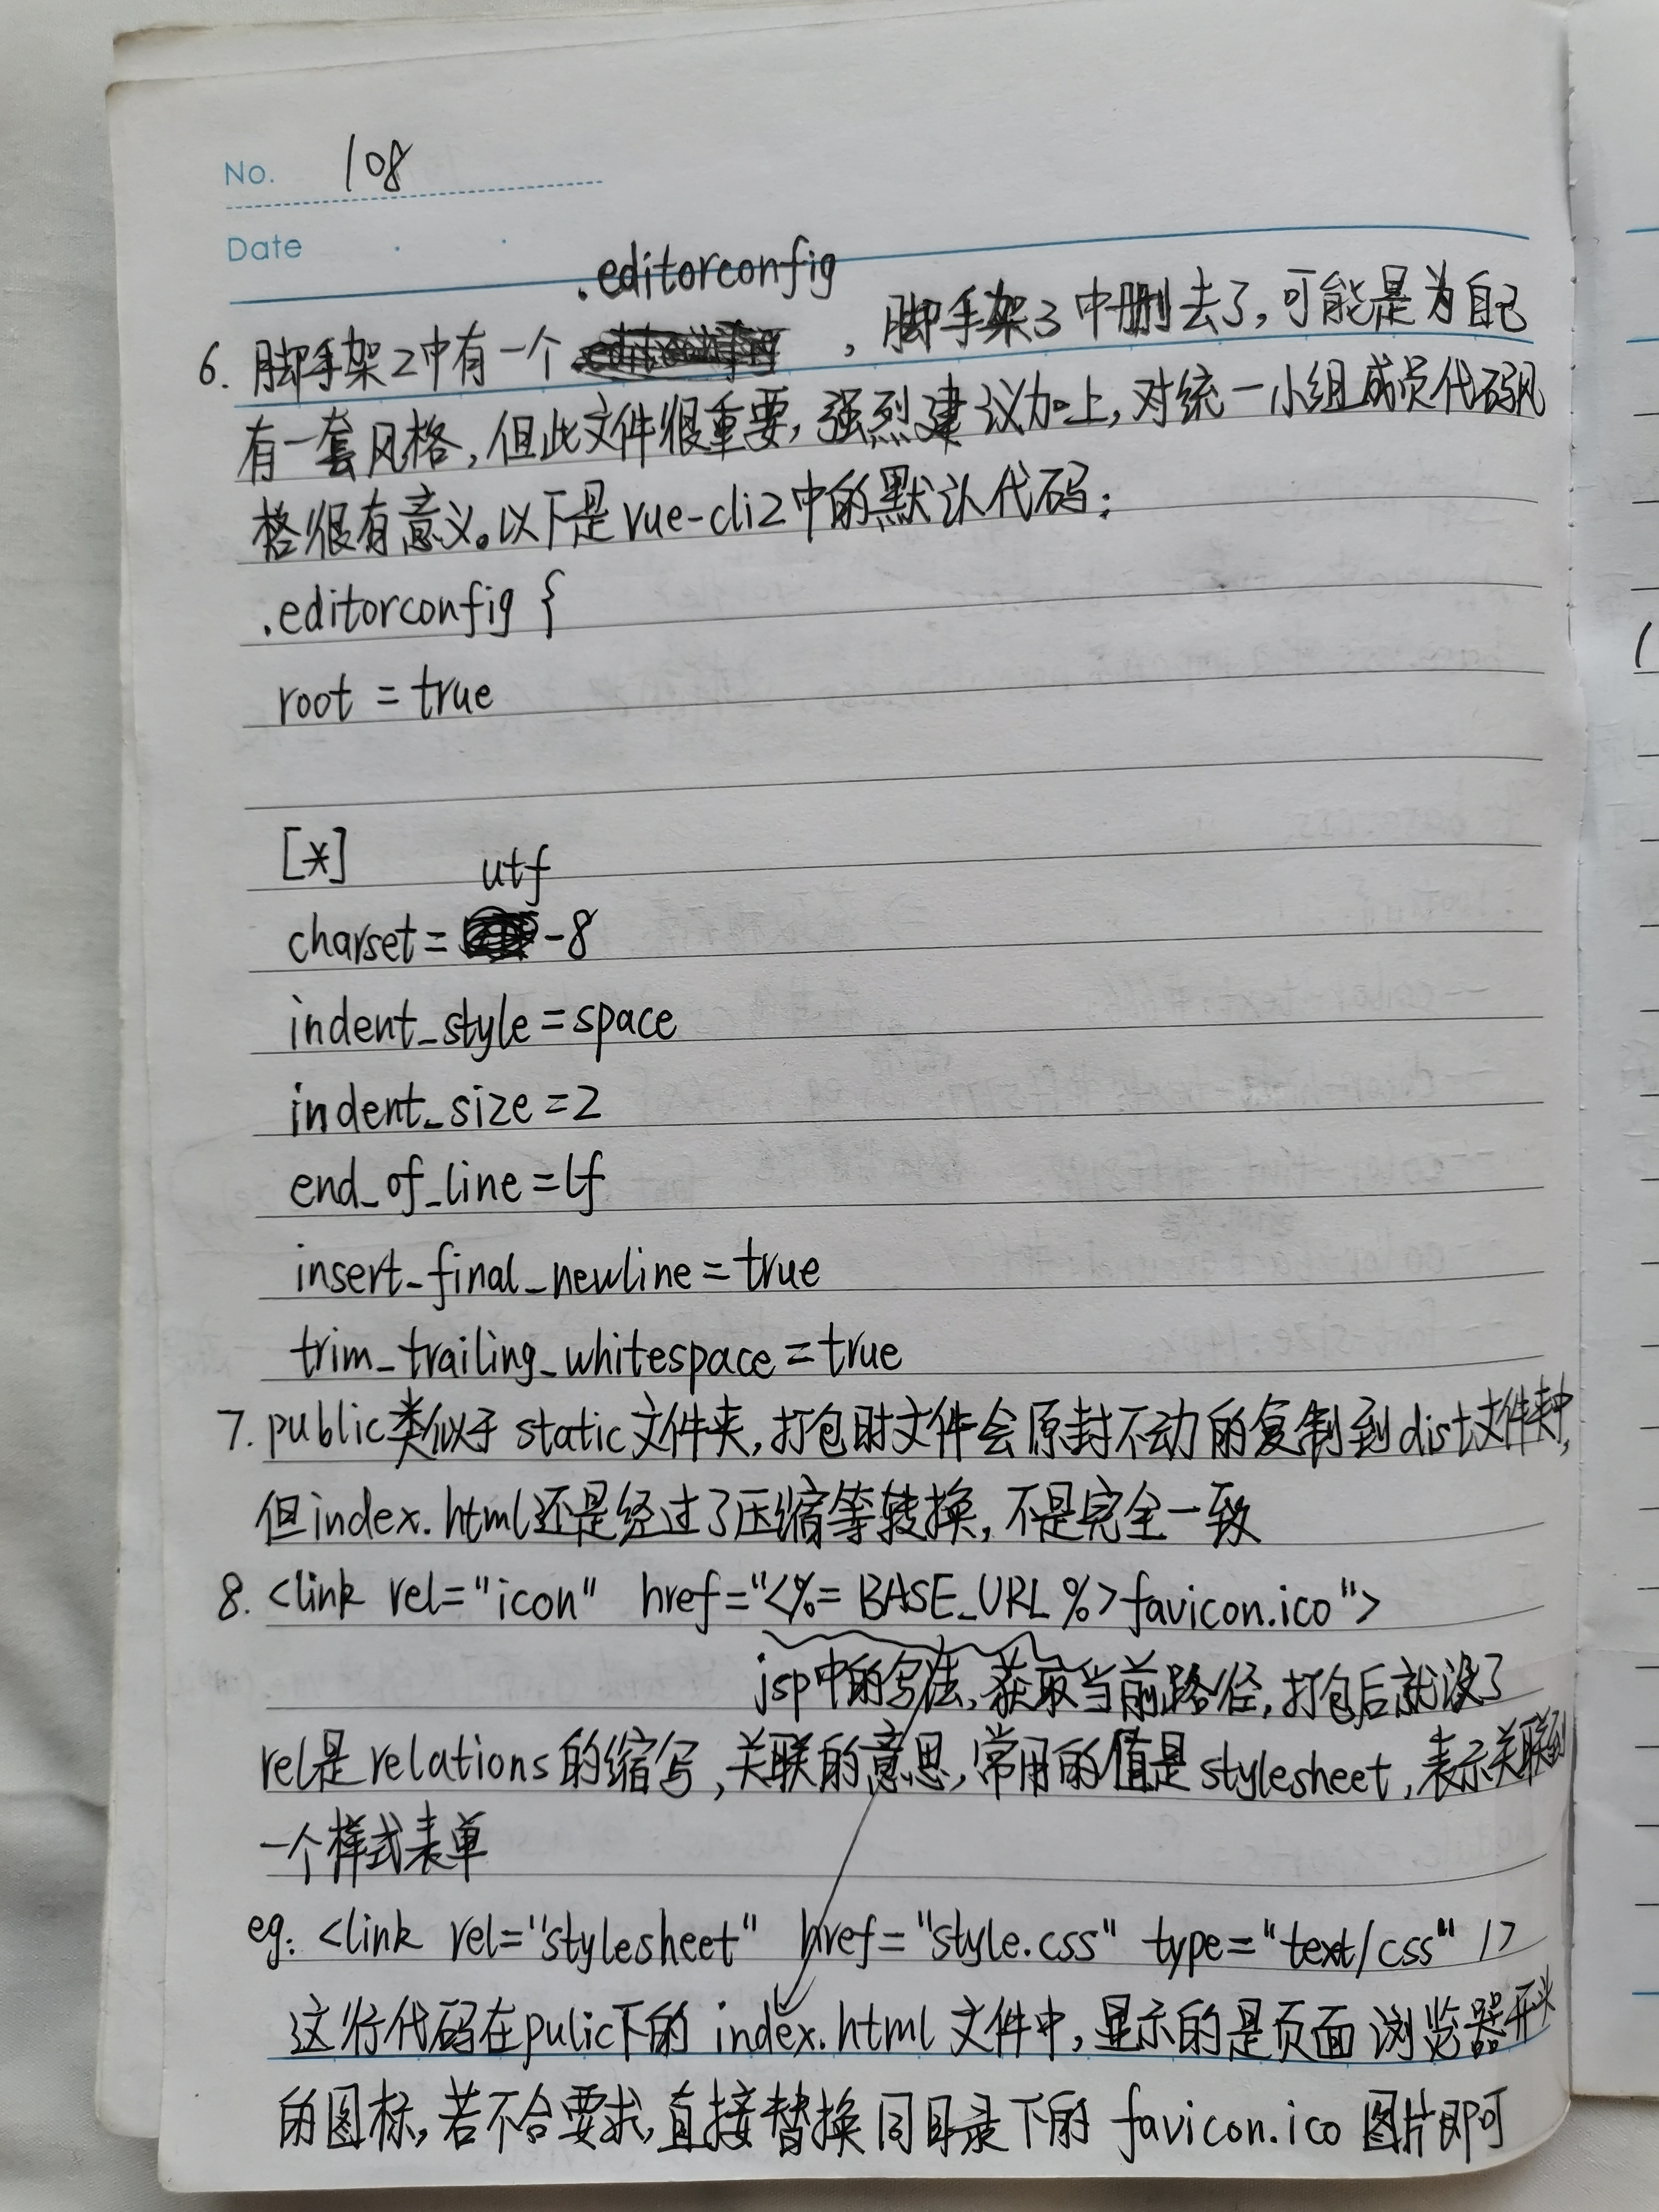 No. 108
Date
.editorconfig
6. 脚手架2中有一个 , 脚手架3中删去了, 可能是为自己
有一套风格, 但此文件很重要, 强烈建议加上, 对统一小组成员代码风
格很有意义。以下是vue-cli2中的默认代码:
.editorconfig {
root = true
[*]
utf
charset = -8
indent_style = space
indent_size = 2
end_of_line = lf
insert_final_newline = true
trim_trailing_whitespace = true
7. public类似于 static文件夹, 打包时文件会原封不动的复制到dist文件夹中,
但index.html还是经过了压缩等转换, 不是完全一致
8. <link rel="icon" href="<%= BASE_URL %>favicon.ico">
jsp中的写法, 获取当前路径, 打包后就没了
rel是relations的缩写, 关联的意思, 常用的值是stylesheet, 表示关联到
一个样式表单
eg: <link rel="stylesheet" href="style.css" type="text/css" />
这行代码在pulic下的 index.html 文件中, 显示的是页面浏览器开头
的图标, 若不合要求, 直接替换同目录下的 favicon.ico 图片即可